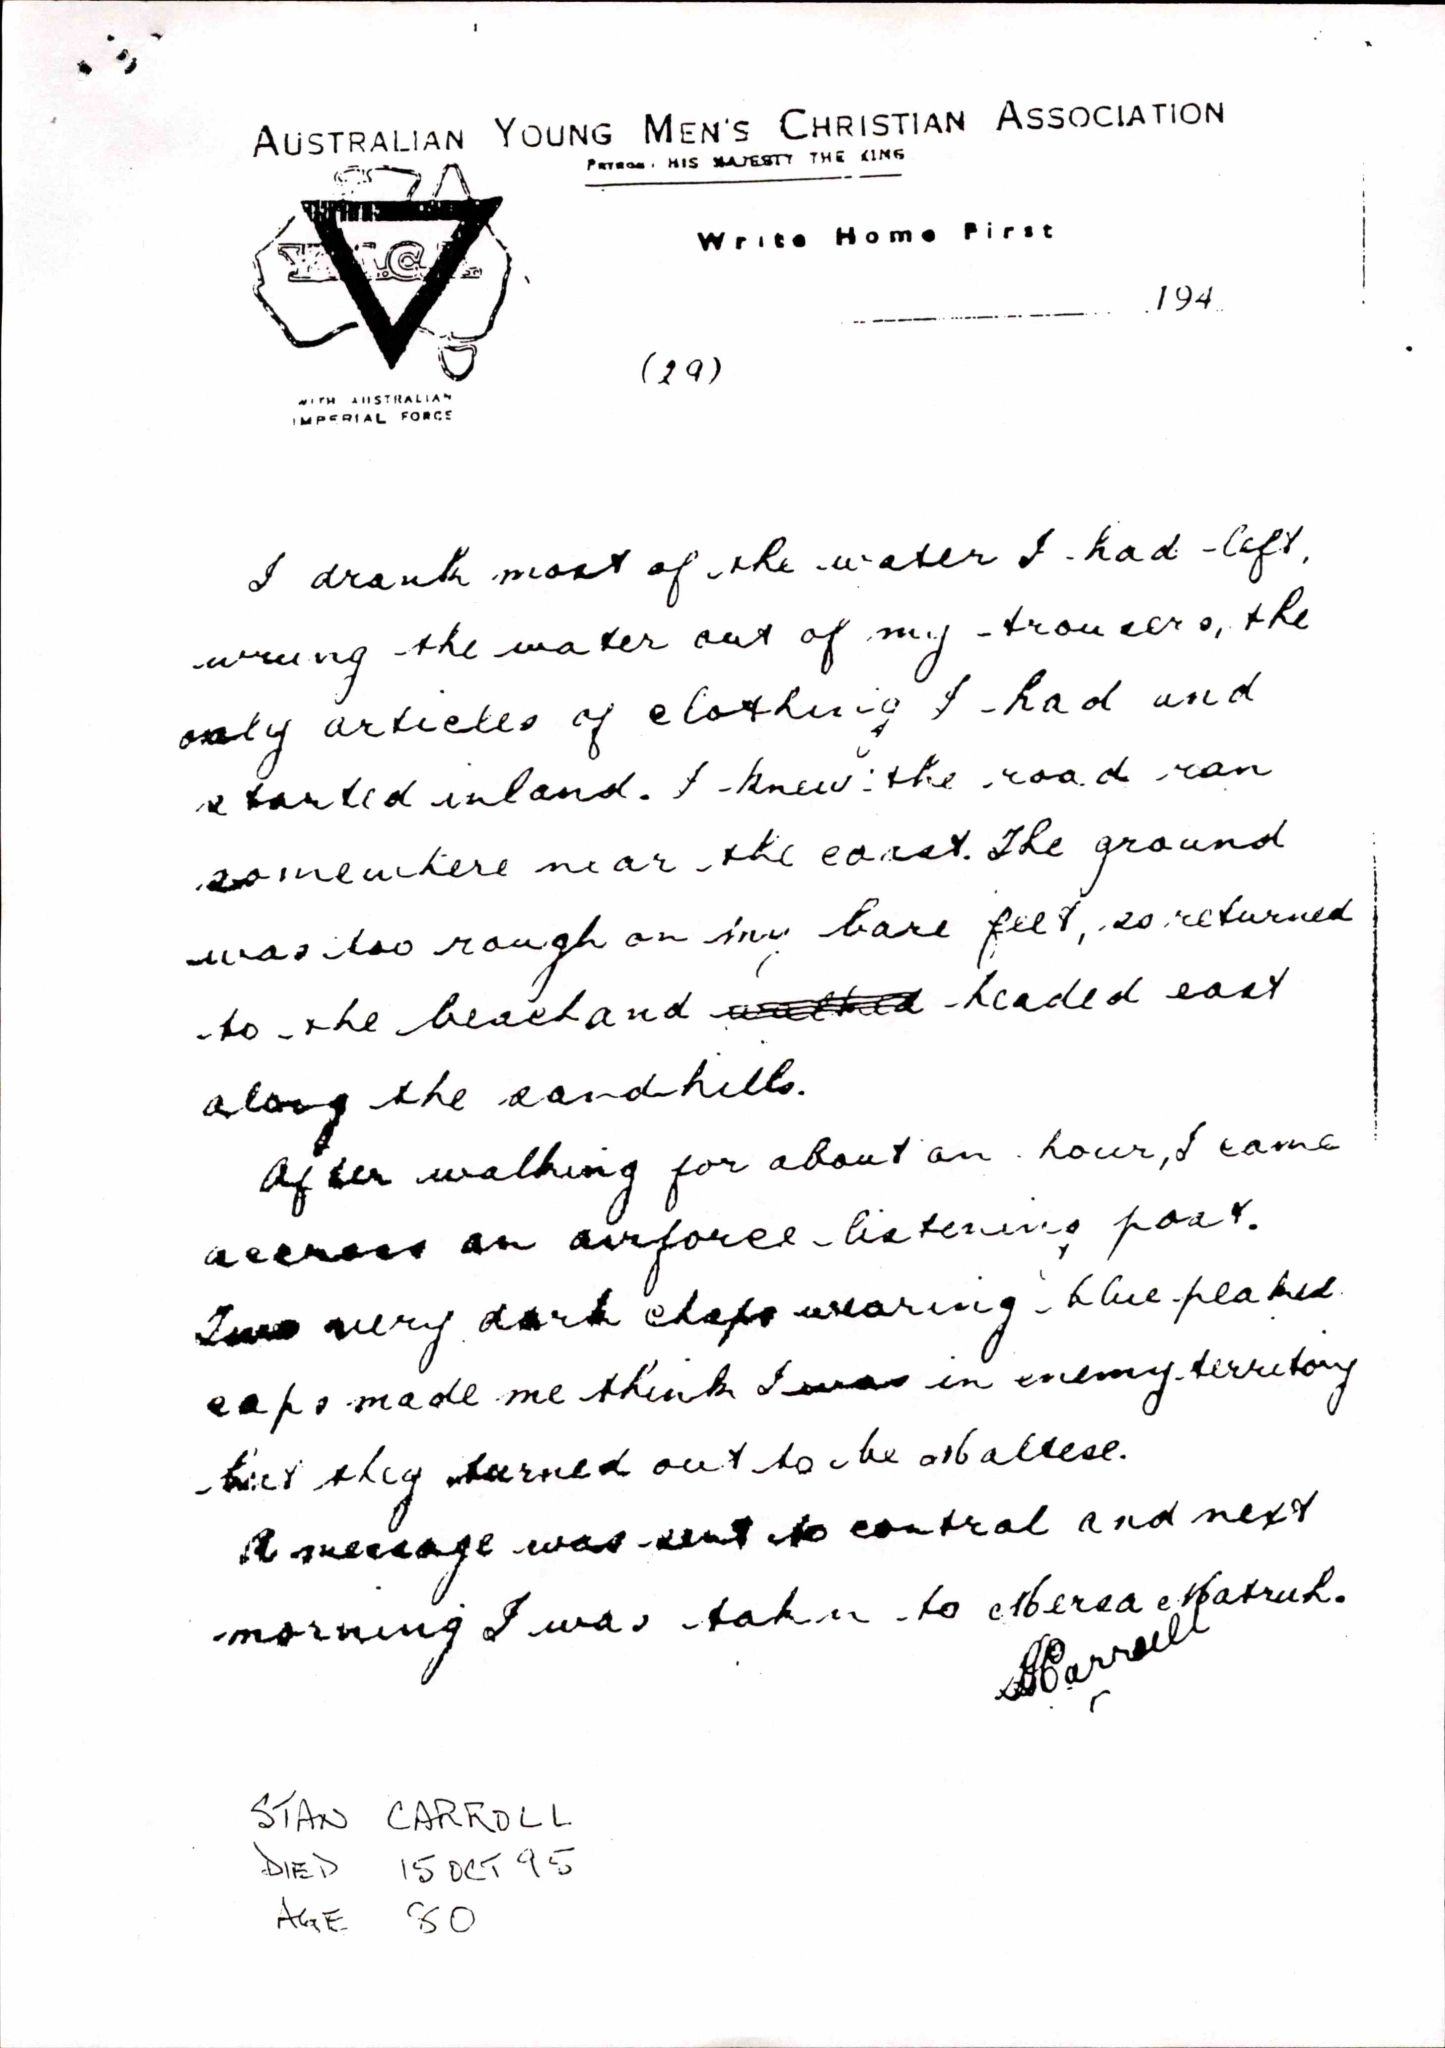 AUSTRALIAN YOUNG MEN'S CHRISTIAN ASSOCIATION
PATRON. HIS MAJESTY THE KING
Y.M.C.A.
Write Home First
194
WITH AUSTRALIAN
IMPERIAL FORCE
(29)
I drank most of the water I had left,
wrung the water out of my trousers, the
only articles of clothing I had and
started inland. I knew the road ran
somewhere near the coast. The ground
was too rough on my bare feet, so returned
to the beach and walked headed east
along the sandhills.
After walking for about an hour, I came
accross an airforce listening post.
Two very dark chaps wearing blue peaked
caps made me think I was in enemy territory
but they turned out to be Maltese.
A message was sent to control and next
morning I was taken to Mersa Matruh.
S Carroll
STAN CARROLL
DIED 15 OCT 95
AGE 80